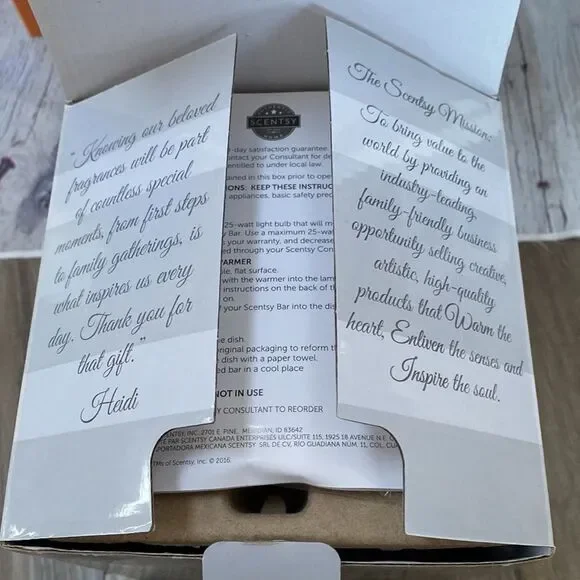 "Knowing our beloved
fragrances will be part
of countless special
moments, from first steps
to family gatherings, is
what inspires us every
day. Thank you for
that gift."
Heidi
SCENTSY
-day satisfaction guarantee
ontact your Consultant for de
entitled to under local law.
ined in this box prior to ope
ONS: KEEP THESE INSTRUC
appliances, basic safety prec
25-watt light bulb that will m
y Bar. Use a maximum 25-wa
s your warranty, and decrease
ed through your Scentsy Con
WARMER
le, flat surface.
with the warmer into the lam
instructions on the back of th
on
f your Scentsy Bar into the dis
e dish.
original packaging to reform t
e dish with a paper towel.
ed bar in a cool place
NOT IN USE
Y CONSULTANT TO REORDER
SCENTSY, INC. 2701 E. PINE, MERIDIAN, ID 83642
PAR SCENTSY CANADA ENTERPRISES ULC/SUITE 115, 1925 18 AVENUE N.E. C
PORTADORA MEXICANA SCENTSY, SRL DE CV, RÍO GUADIANA NÚM. 11, COL. CU
TMs of Scentsy, Inc. © 2016.
The Scentsy Mission:
To bring value to the
world by providing an
industry-leading,
family-friendly business
opportunity selling creative,
artistic, high-quality
products that Warm the
heart, Enliven the senses and
Inspire the soul.